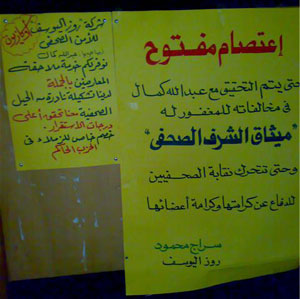 إعتصام مفتوح
حتى يتم التحقيق مع عبد الله كمال
في مخالفاته للمغفور له
"ميثاق الشرف الصحفى"
وحتى تتحرك نقابة الصحفيين
للدفاع عن كرامتها وكرامة أعضائها
سراج محمود
روز اليوسف
شركة روز اليوسف
للأمن الصحفى
نوفر لكم خدمة ملاحقة
المعارضين بالمجلة
لدينا تشكيلة نادرة من الحيل
الصحفية
درجات الاستقرار
خصم خاص للزملاء فى
الحزب الحاكم